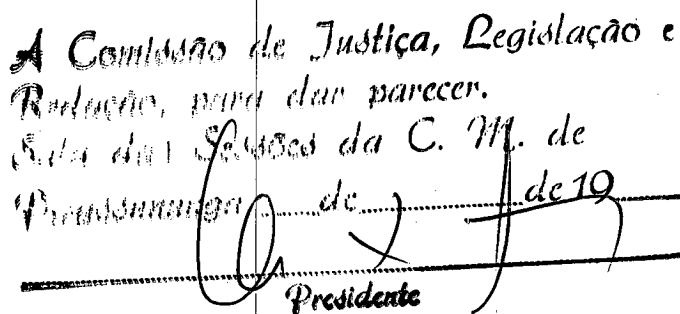 A Comissão de Justiça, Legislação e
Redação, para dar parecer.
Sala das Sessões da C. M. de
Pirassununga, ... de ... de 19
Presidente